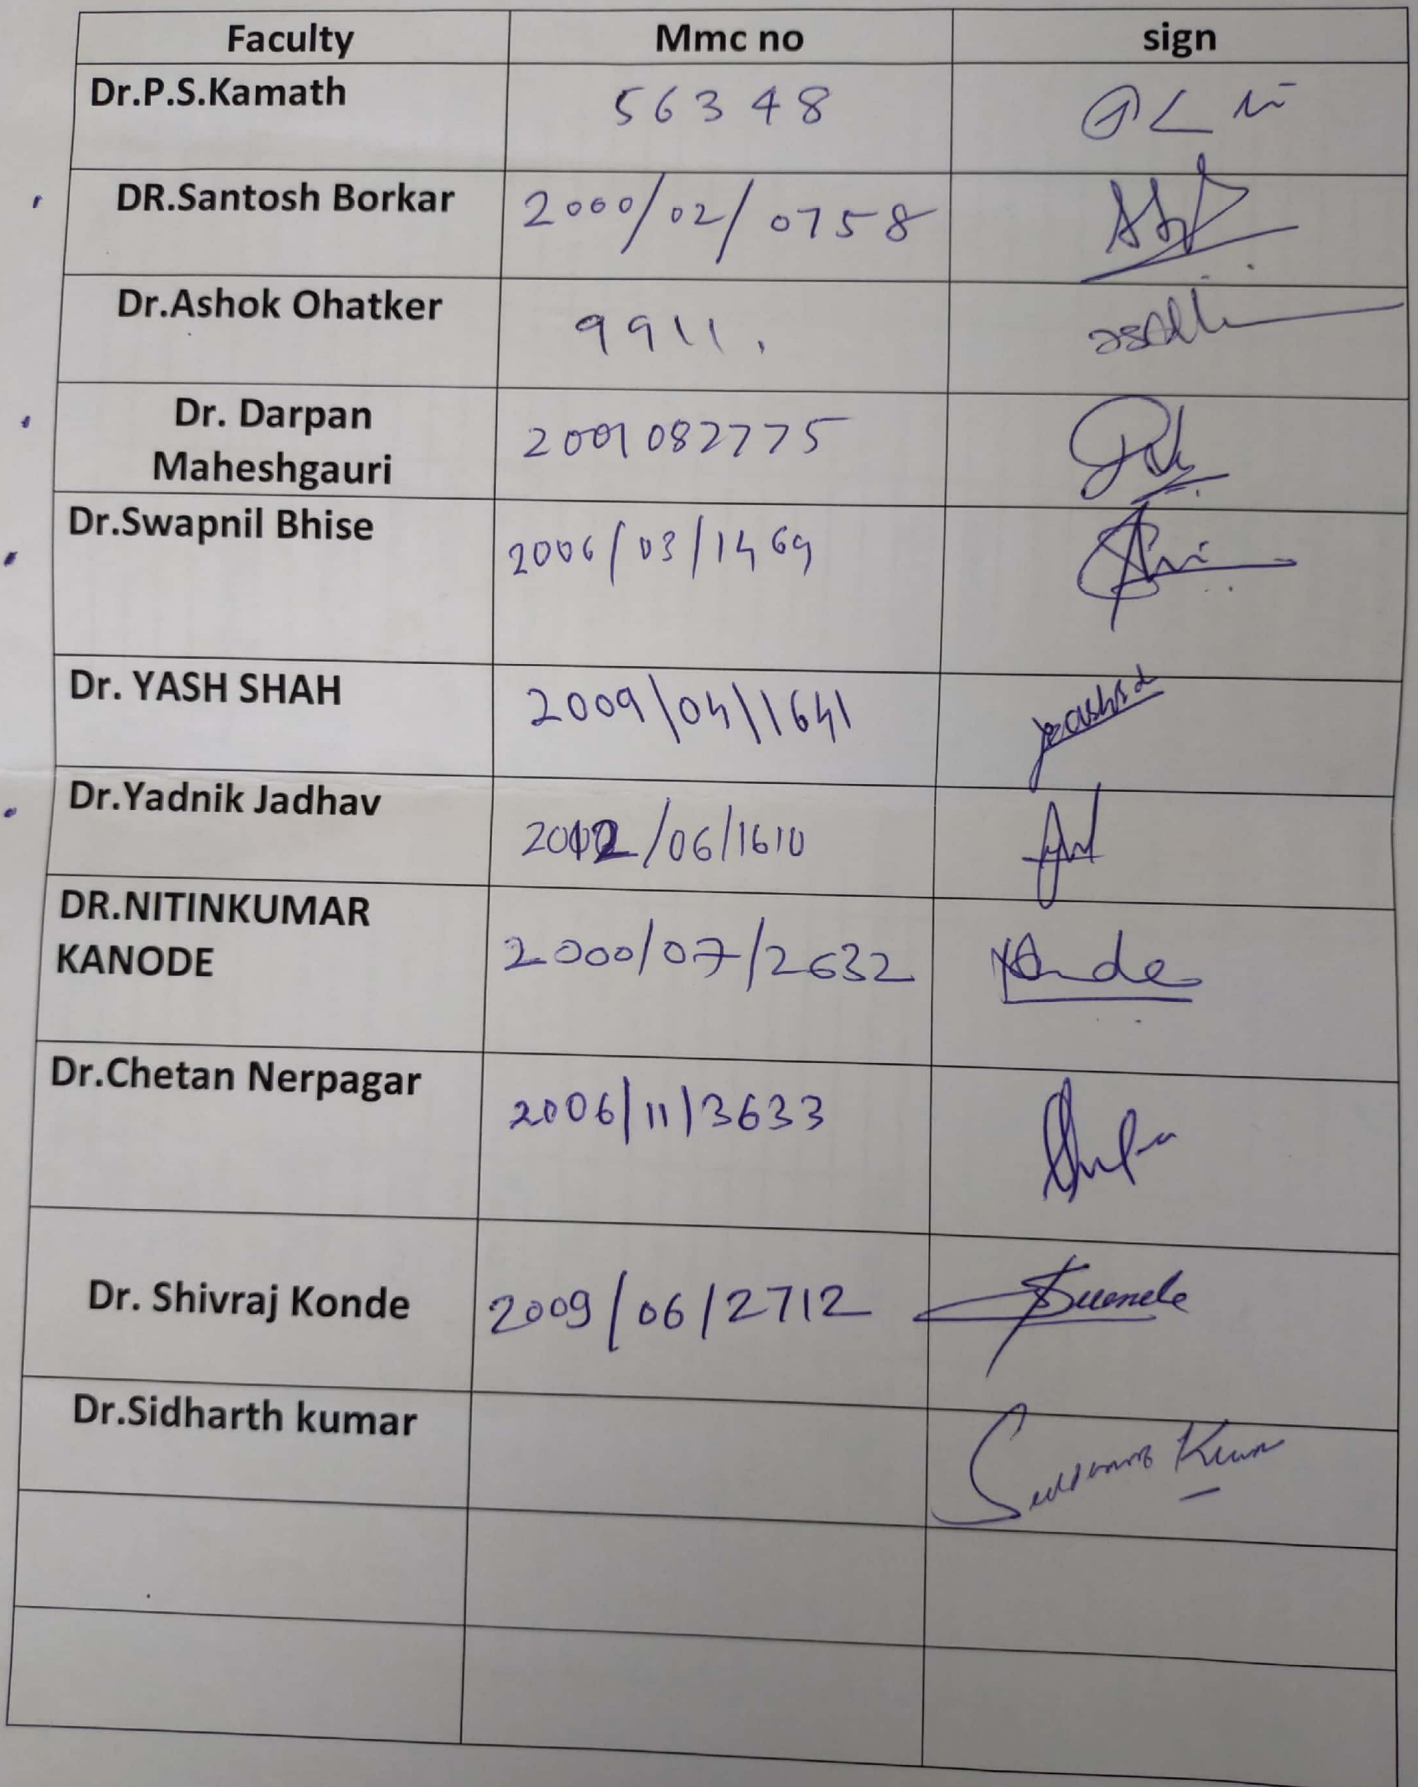 Faculty Mmc no sign
Dr.P.S.Kamath 56348
DR.Santosh Borkar 2000/02/0758
Dr.Ashok Ohatker 9911.
Dr. Darpan
Maheshgauri 2001082775
Dr.Swapnil Bhise 2006/03/1469
Dr. YASH SHAH 2009/04/1641
Dr.Yadnik Jadhav 2012/06/1610
DR.NITINKUMAR
KANODE 2000/07/2632
Dr.Chetan Nerpagar 2006/11/3633
Dr. Shivraj Konde 2009/06/2712
Dr.Sidharth kumar